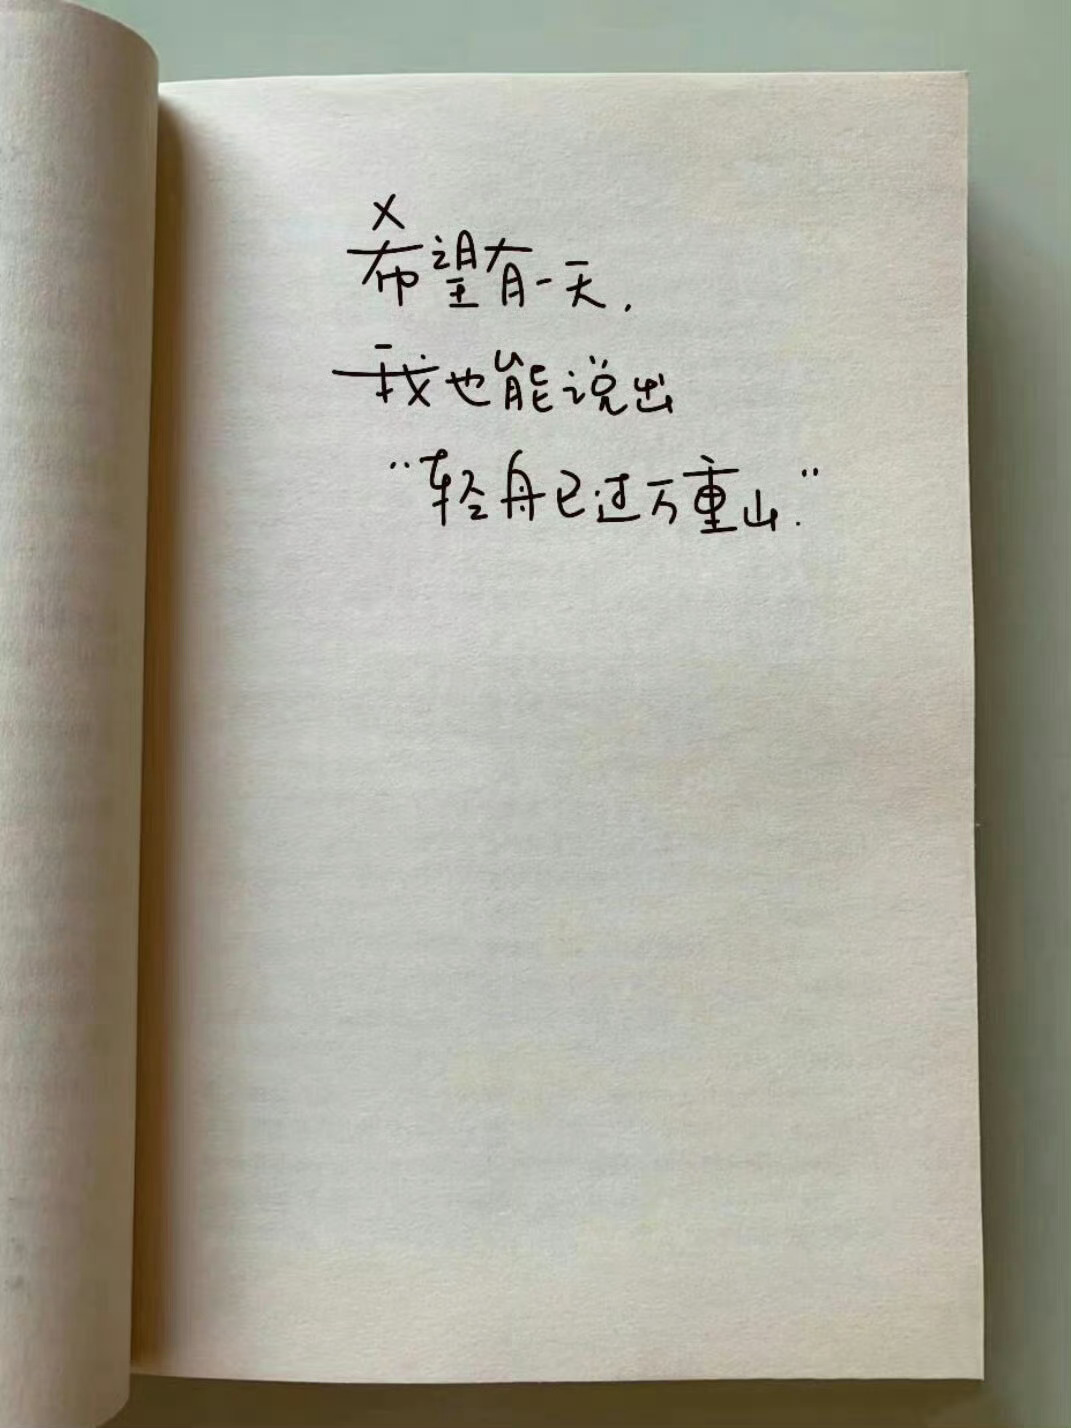 希望有一天,
我也能说出
"轻舟已过万重山."